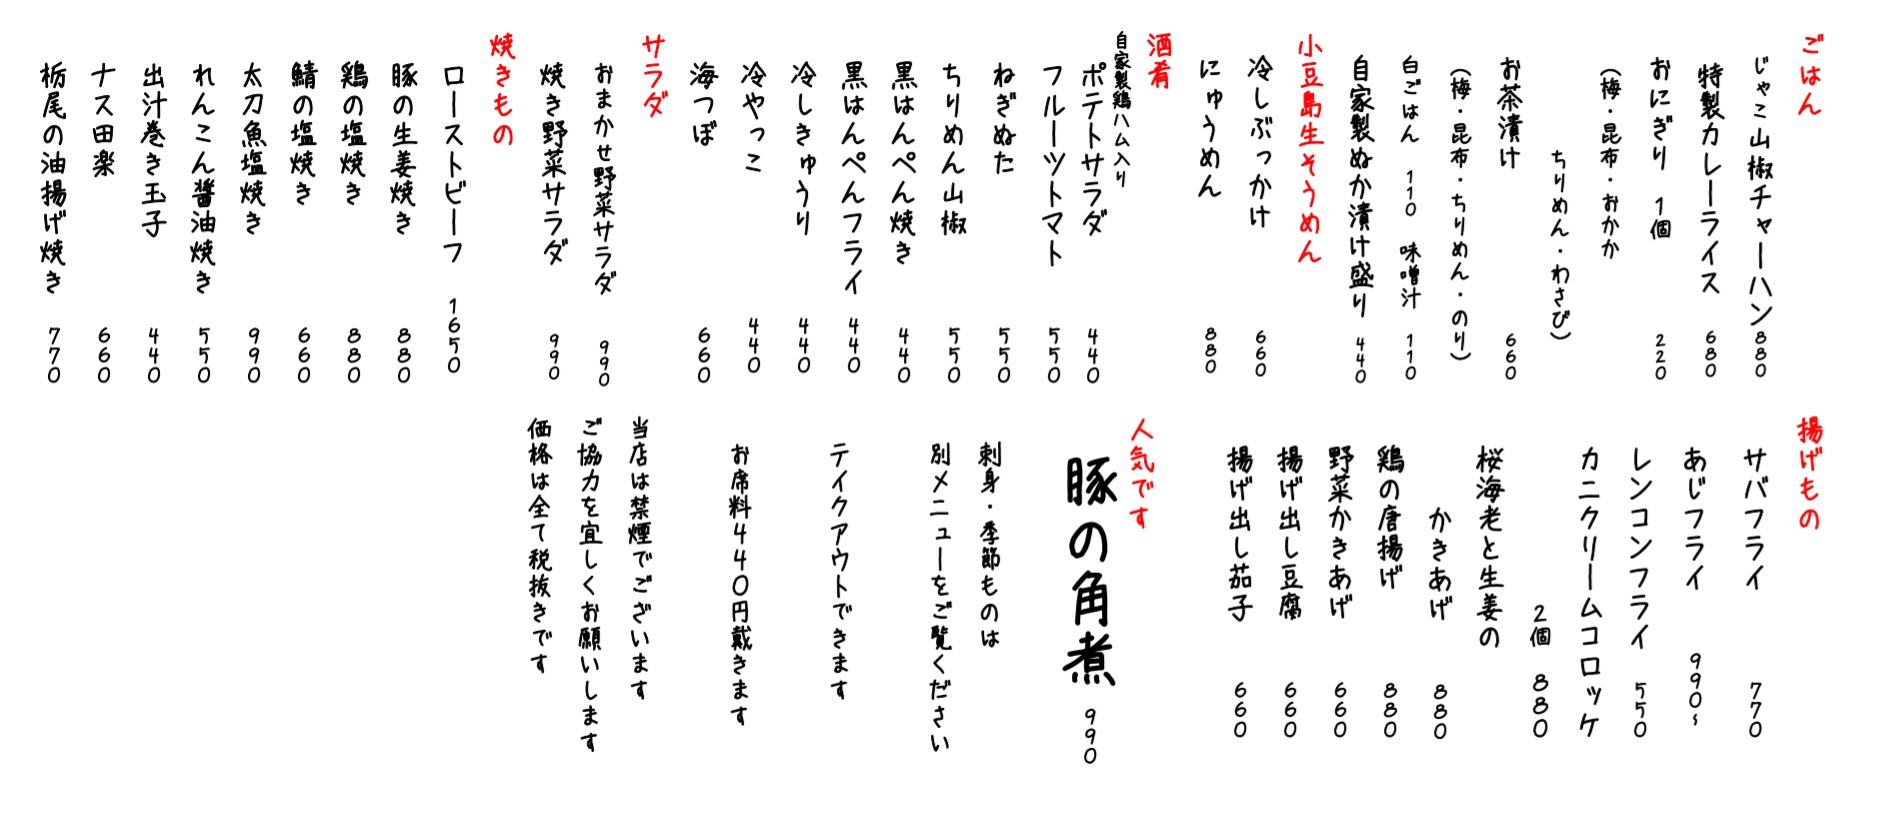 ごはん
じゃこ山椒チャーハン 880
特製カレーライス 680
おにぎり 1個 220
(梅・昆布・おかか
ちりめん・わさび)
お茶漬け 660
(梅・昆布・ちりめん・のり)
白ごはん 110 味噌汁 110
自家製ぬか漬け盛り 440
小豆島生そうめん
冷しぶっかけ 660
にゅうめん 880
酒肴
自家製鶏ハム入り
ポテトサラダ 440
フルーツトマト 550
ねぎぬた 550
ちりめん山椒 550
黒はんぺん焼き 440
黒はんぺんフライ 440
冷しきゅうり 440
冷やっこ 440
海つぼ 660
サラダ
おまかせ野菜サラダ 990
焼き野菜サラダ 990
焼きもの
ローストビーフ 1650
豚の生姜焼き 880
鶏の塩焼き 880
鯖の塩焼き 660
太刀魚塩焼き 990
れんこん醤油焼き 550
出汁巻き玉子 440
ナス田楽 660
栃尾の油揚げ焼き 770
揚げもの
サバフライ 770
あじフライ 990~
レンコンフライ 550
カニクリームコロッケ
2個 880
桜海老と生姜の
かきあげ 880
鶏の唐揚げ 880
野菜かきあげ 660
揚げ出し豆腐 660
揚げ出し茄子 660
人気です
豚の角煮 990
刺身・季節ものは
別メニューをご覧ください
テイクアウトできます
お席料440円戴きます
当店は禁煙でございます
ご協力を宜しくお願いします
価格は全て税抜きです